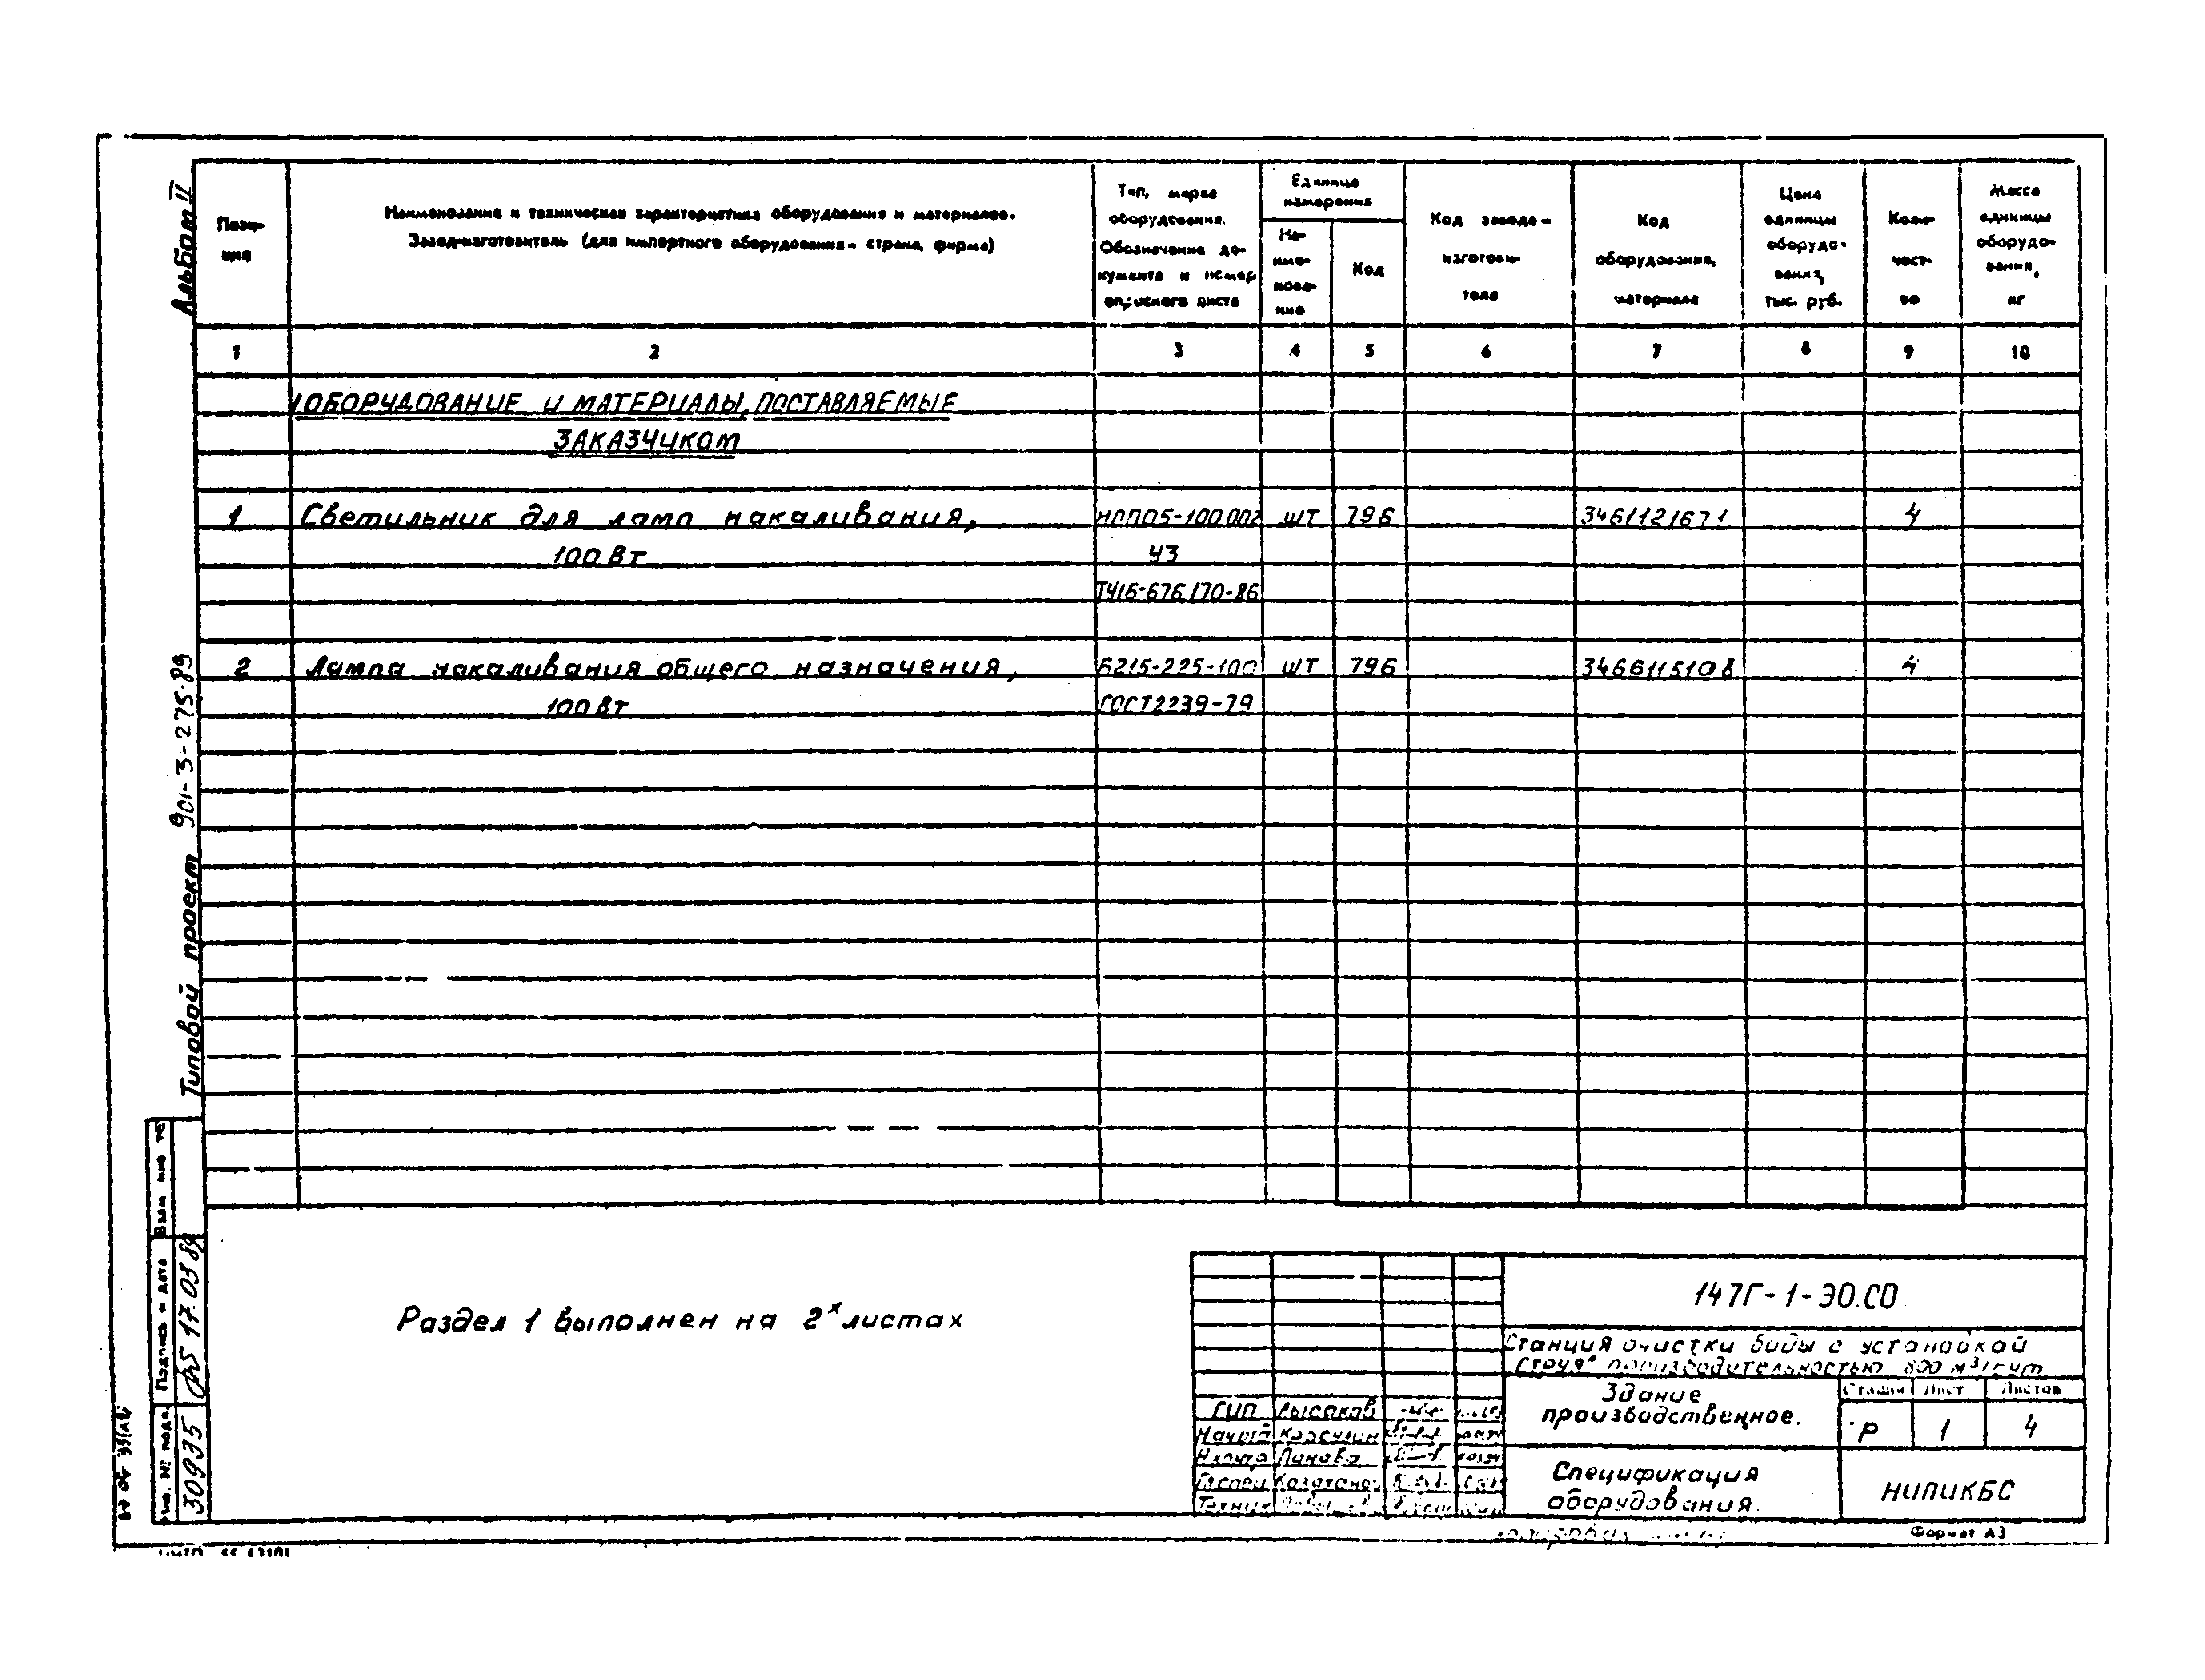 Альбом II
Типовой проект 901-3-275.89
Пози-
ция
Наименование и техническая характеристика оборудования и материалов.
Завод-изготовитель (для импортного оборудования - страна, фирма)
Тип, марка
оборудования.
Обозначение до-
кумента и номер
опросного листа
Единица
измерения
На-
име-
нова-
ние
Код
Код завода-
изготови-
теля
Код
оборудования,
материала
Цена
единицы
оборудо-
вания,
тыс. руб.
Коли-
чест-
во
Масса
единицы
оборудо-
вания,
кг
1 2 3 4 5 6 7 8 9 10
1 ОБОРУДОВАНИЕ И МАТЕРИАЛЫ, ПОСТАВЛЯЕМЫЕ
ЗАКАЗЧИКОМ
1 Светильник для ламп накаливания, НПП05-100.002 шт 796 3461121671 4
100 Вт У3
ТУ16-676.170-86
2 Лампа накаливания общего назначения, Б215-225-100 шт 796 3466115108 4
100 Вт ГОСТ2239-79
Раздел 1 выполнен на 2х листах
Взам инв №
Подпись и дата
17.03.89
Инв. № подл.
309935
147Г-1-ЭО.СО
Станция очистки воды с установкой
"Струя" производительностью 800 м³/сут
Здание
производственное.
Стадия Лист Листов
Р 1 4
Спецификация
оборудования.
НИПИКБС
ГИП Лысаков
Н.контр Панова
Гл.спец
Техник
Формат А3